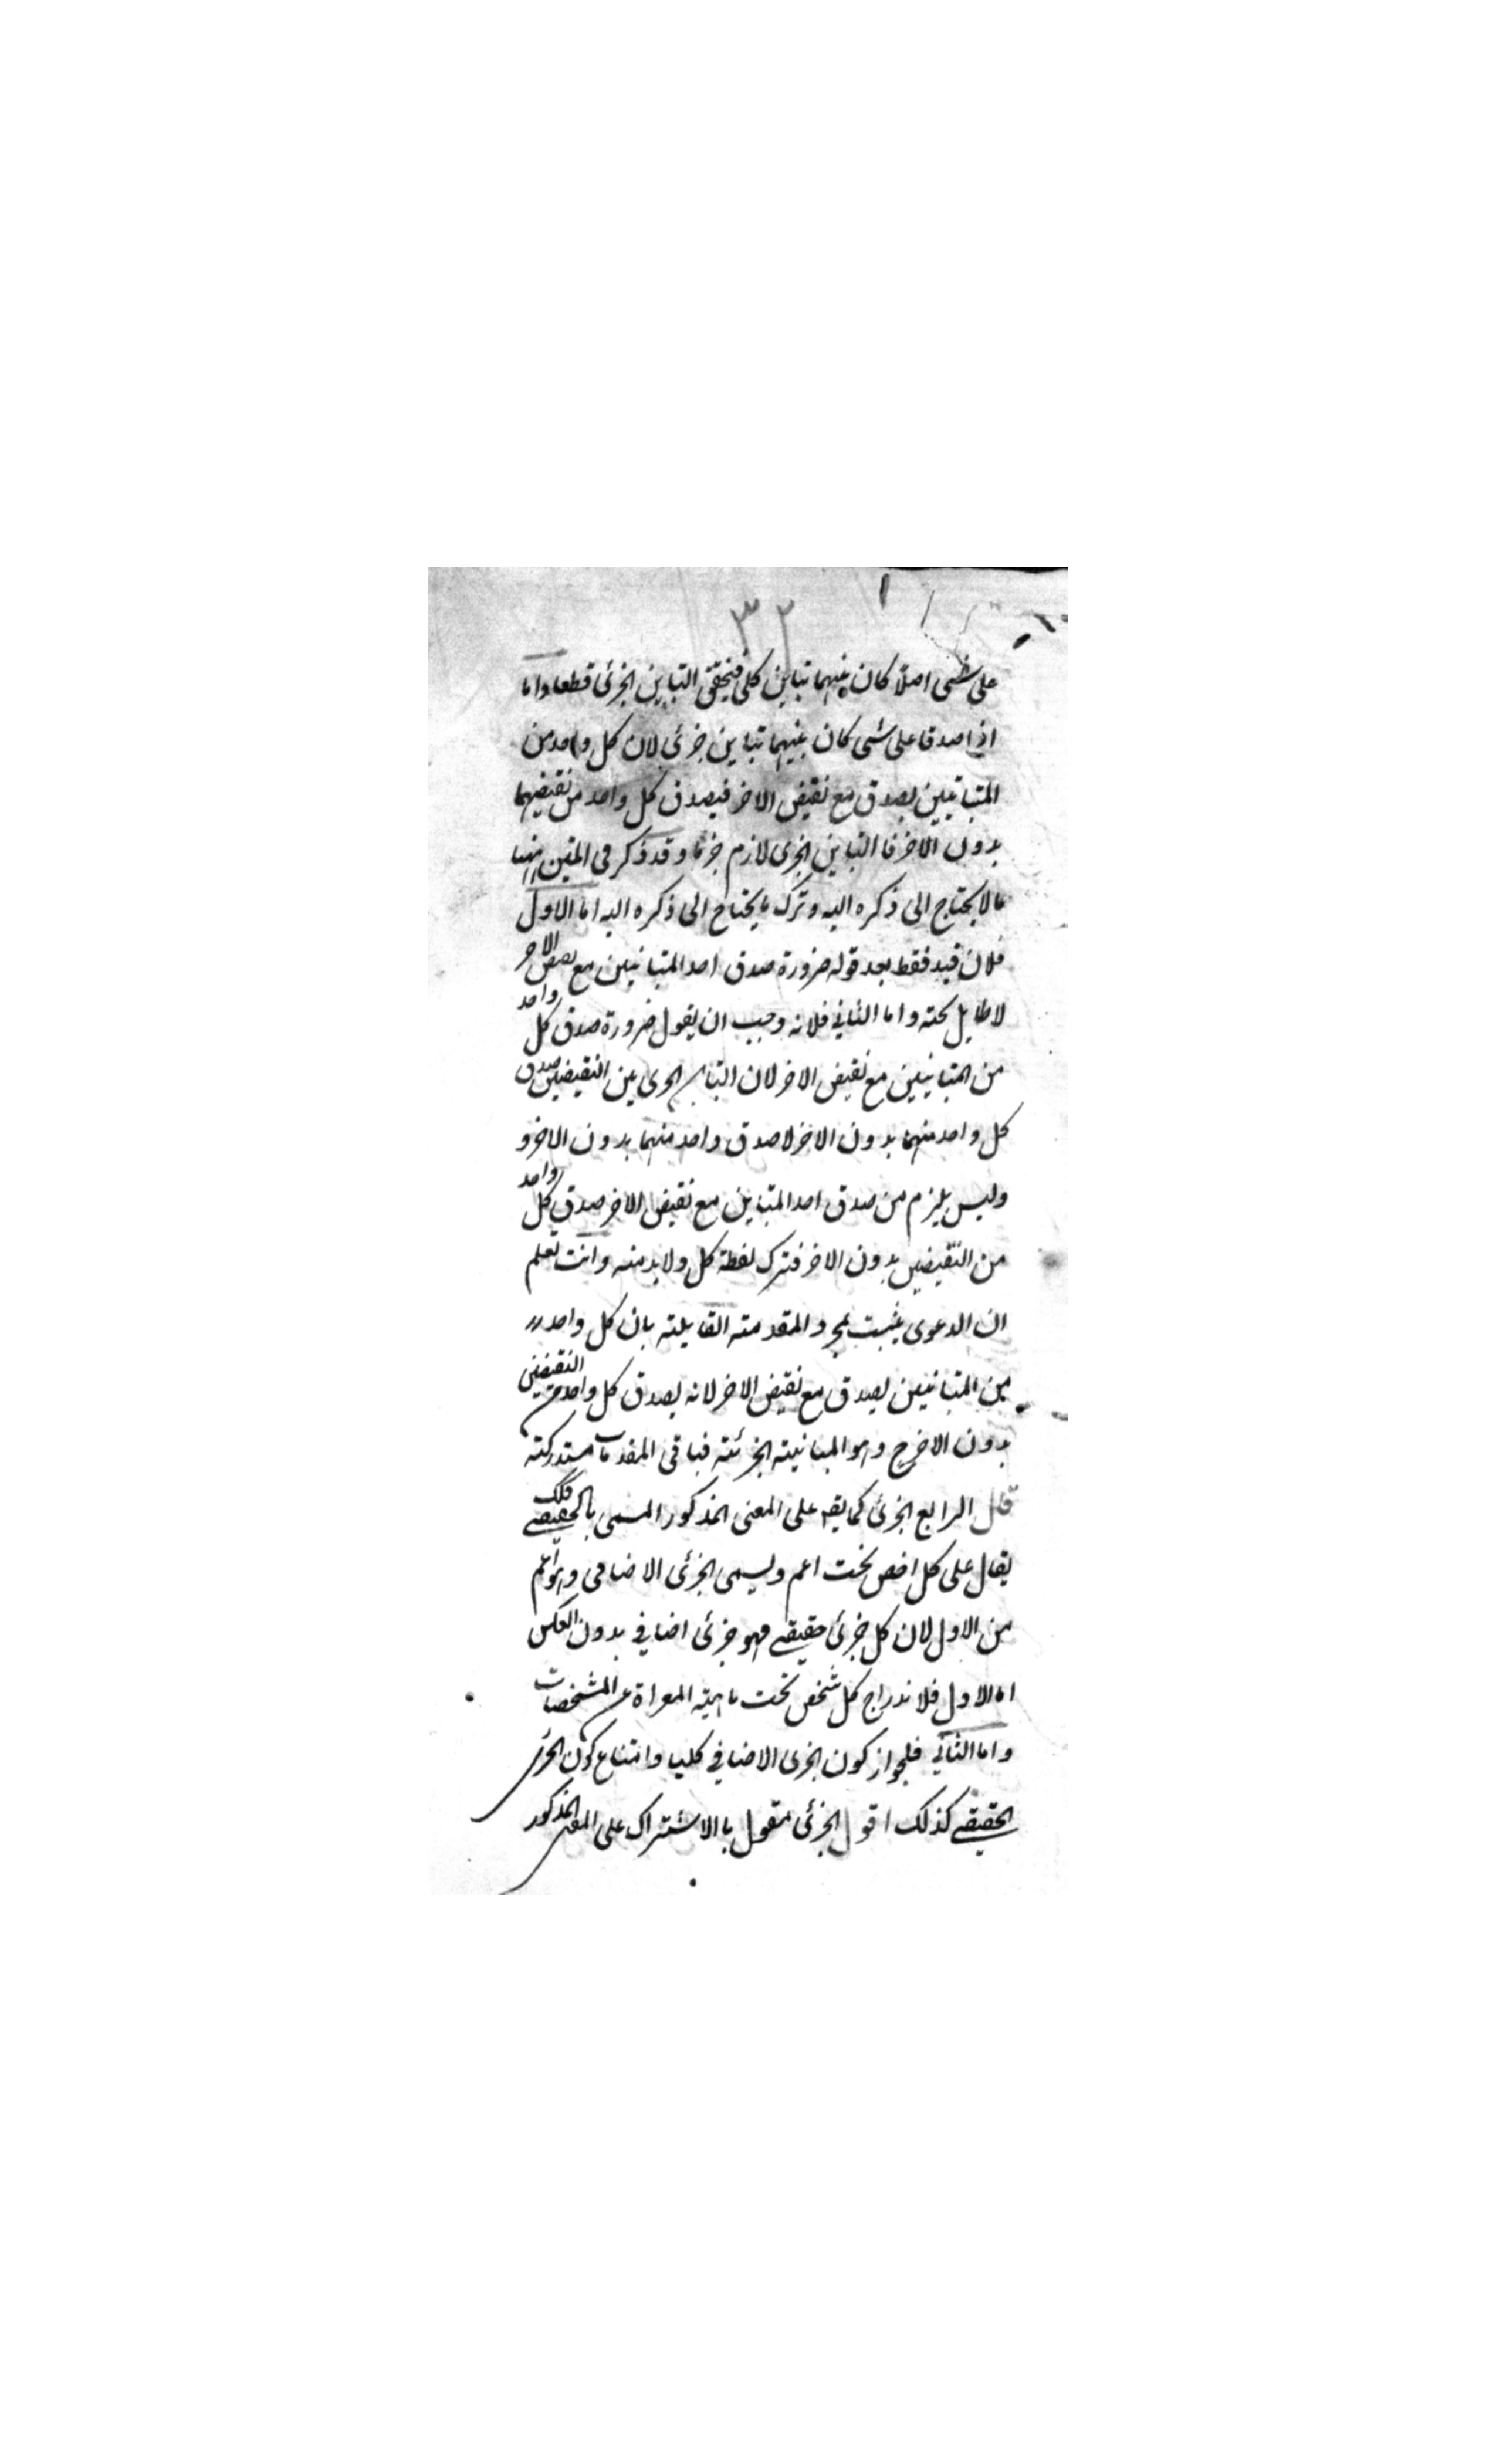 ٣٢
على شئ اصلا كان بينهما تباين كلى فيتحقق التباين الجزئى قطعا واما
اذا صدقا على شئ كان بينهما تباين جزئى لان كل واحد من
المتباينين يصدق مع نقيض الاخر فيصدق كل واحد من نقيضيهما
بدون الاخر فا التباين الجزى لازم جزما وقد ذكر فى المتن ههنا
مالا يحتاج الى ذكره اليه وترك ما يحتاج الى ذكره اليه اما الاول
فلان قيد فقط بعد قوله ضرورة صدق احد المتبانيين مع نقيض الاخر
لا طايل تحته واما الثاني فلانه وجب ان يقول ضرورة صدق كل واحد
من المتبانيين مع نقيض الاخر لان التباين الجزى بين النقيضين صدق
كل واحد منهما بدون الاخر لا صدق واحد منهما بدون الاخر و
وليس يلزم من صدق احد المتباين مع نقيض الاخر صدق كل واحد
من النقيضين بدون الاخر فترك لفظة كل ولا بد منه وانت تعلم
ان الدعوى يثبت بمجرد المقدمته القايلته بان كل واحد
من المتبانيين يصدق مع نقيض الاخر لانه يصدق كل واحد من النقيضين
بدون الاخر ح وهو المبانيته الجزئته فباقى المقدمات مستدركته
قال الرابع الجزئى كما يقه على المعنى المذكور المسمى بالحقيقے فكك
يقال على كل اخص تحت اعم ويسمى الجزئى الاضافى وهو اعم
من الاول لان كل جزئى حقيقے فهو جزئى اضافي بدون العكس
اما الاول فلا ندراج كل شخص تحت ماهيته المعراة عن المشخصات
واما الثاني فلجواز كون الجزى الاضافي كليا وامتناع كون الجزئى
الحقيقے كذلك اقول الجزئى مقول با الاشتراك على المعنى المذكور